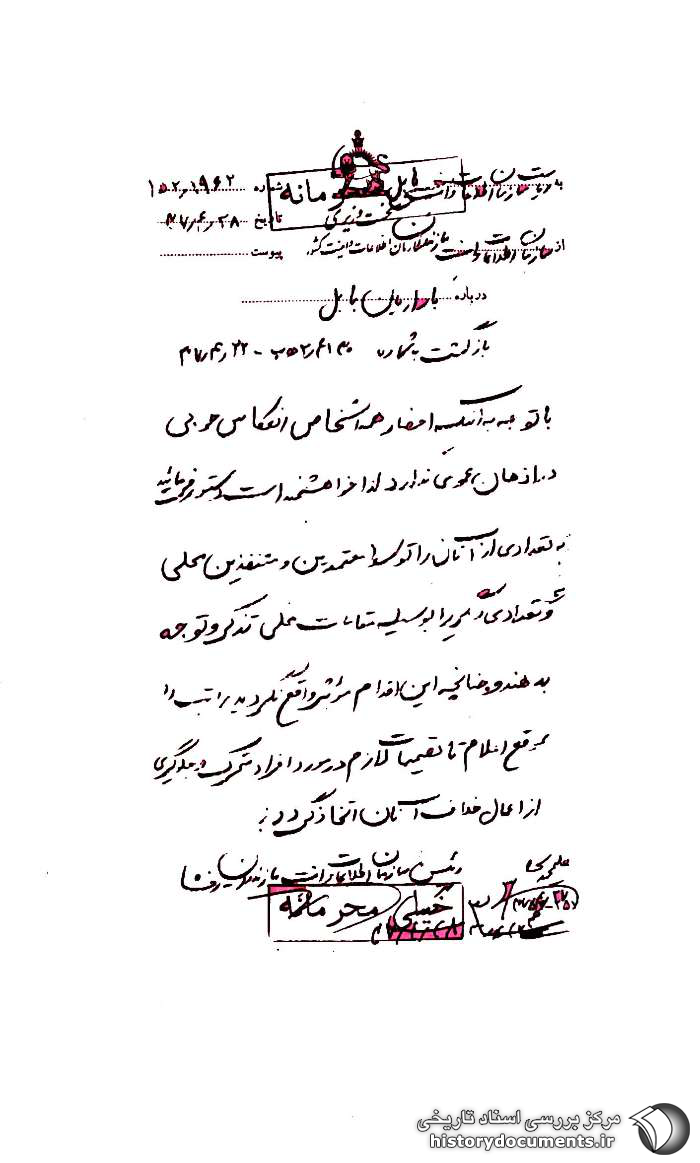 خیلی محرمانه
به ریاست سازمان اطلاعات و امنیت بابل
شماره ۱۹۶۲
نخست وزیری
تاریخ ۴۷٫۴٫۲۸
از سازمان اطلاعات و امنیت مازندران
سازمان اطلاعات و امنیت کشور
پیوست
درباره بابل
بازگشت بشماره ۲۲٫۴٫۴۷
با توجه به اینکه احضار همه اشخاص انعکاس خوبی
در اذهان عمومی ندارد لذا خواهشمند است دستور فرمائید
به تعدادی از آنان را توسط معتمدین و متنفذین محلی
و تعدادی دیگر را بوسیله مقامات محلی تذکر و توجه
بدهند و چنانچه این اقدام مؤثر واقع نگردید مراتب را
بموقع اعلام تا تصمیمات لازم در مورد افراد محرک و جلوگیری
از اعمال خلاف آنان اتخاذ گردد
رئیس سازمان اطلاعات و امنیت مازندران
خیلی محرمانه
مرکز بررسی اسناد تاریخی
historydocuments.ir